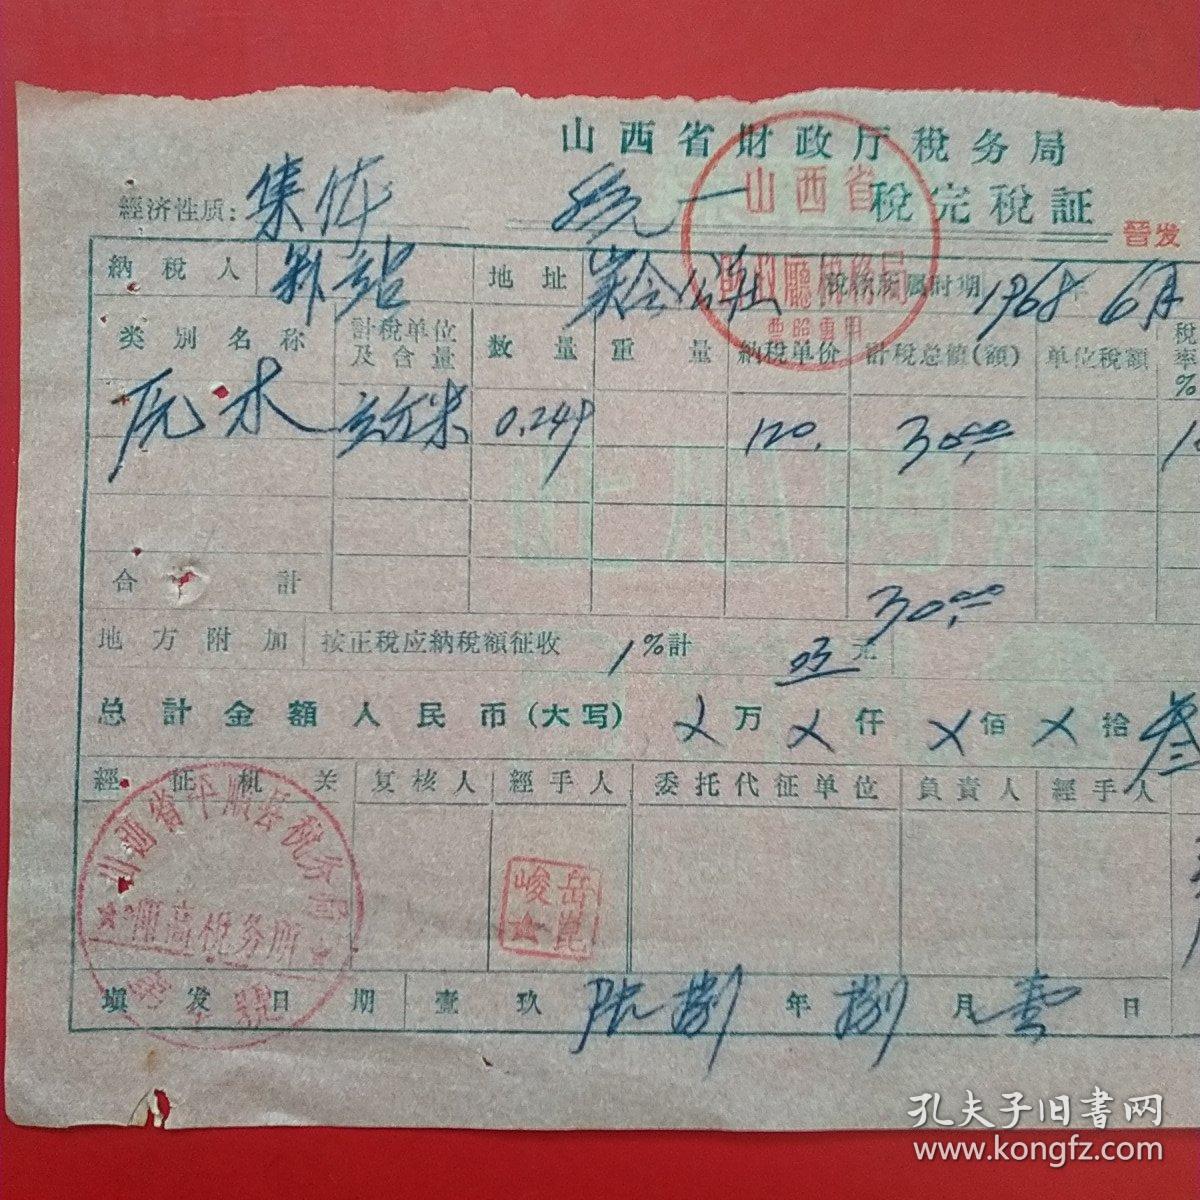 山西省財政厅稅务局
經济性质：集体 統一 稅完稅証 晉发
山西省
財政廳稅務局
票照專用
納稅人 地址 公社 稅款所属时期 1968年 6月
类别名称 計稅单位及含量 数量 重量 納稅单价 計稅总値(額) 单位稅額 稅率%
元木 立方米 0.249 120. 30.00
合計 30.00
地方附加 按正稅应納稅額征收 1%計 .03 元
总計金額人民币(大写) ×万×仟×佰×拾叁
經征机关 复核人 經手人 委托代征单位 負責人 經手人
山西省平順县稅务局
稅务所
岳崑峻
填发日期 壹玖陆捌年捌月壹日
孔夫子旧书网
www.kongfz.com